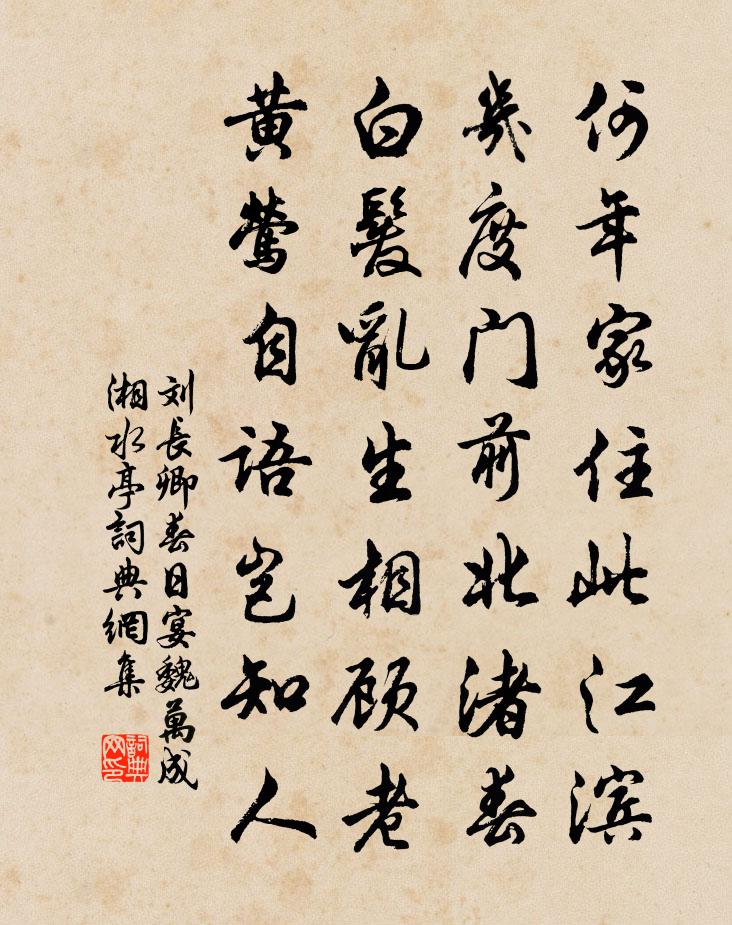 何年家住此江滨
幾度门前北渚春
白髮亂生相顾老
黄莺自语岂知人
刘長卿春日宴魏萬成
湘水亭詞典網集
詞典
网印